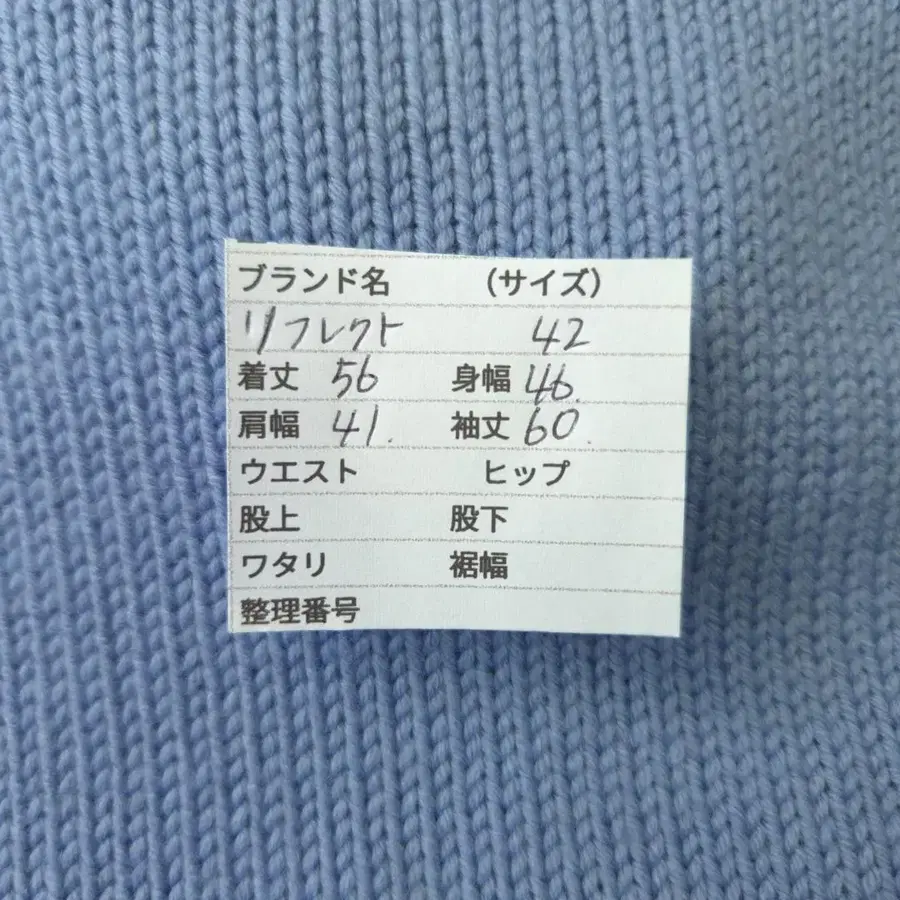 ブランド名 （サイズ）
リフレクト 42
着丈 56 身幅 46.
肩幅 41. 袖丈 60.
ウエスト ヒップ
股上 股下
ワタリ 裾幅
整理番号